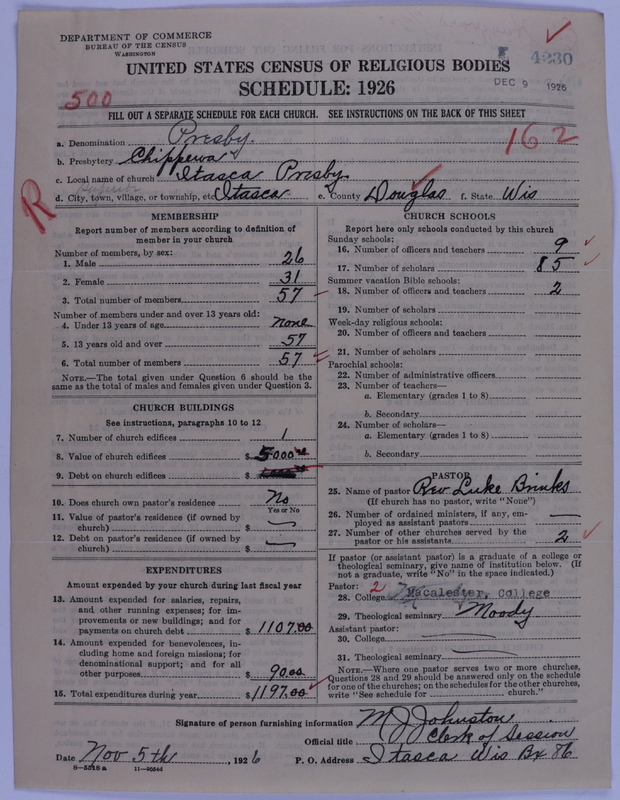 DEPARTMENT OF COMMERCE
BUREAU OF THE CENSUS
WASHINGTON
4230
UNITED STATES CENSUS OF RELIGIOUS BODIES
DEC 9 1926
SCHEDULE: 1926
500
FILL OUT A SEPARATE SCHEDULE FOR EACH CHURCH. SEE INSTRUCTIONS ON THE BACK OF THIS SHEET
162
a. Denomination Presby.
b. Presbytery Chippewa
c. Local name of church Itasca Presby.
Superior
d. City, town, village, or township, etc. Itasca e. County Douglas f. State Wis
R
MEMBERSHIP
Report number of members according to definition of
member in your church
Number of members, by sex:
1. Male 26
2. Female 31
3. Total number of members 57
Number of members under and over 13 years old:
4. Under 13 years of age none
5. 13 years old and over 57
6. Total number of members 57
NOTE.—The total given under Question 6 should be the
same as the total of males and females given under Question 3.
CHURCH BUILDINGS
See instructions, paragraphs 10 to 12
7. Number of church edifices 1
8. Value of church edifices $ 5000
9. Debt on church edifices $
10. Does church own pastor's residence No
Yes or No
11. Value of pastor's residence (if owned by
church) $ —
12. Debt on pastor's residence (if owned by
church) $ —
EXPENDITURES
Amount expended by your church during last fiscal year
13. Amount expended for salaries, repairs,
and other running expenses; for im-
provements or new buildings; and for
payments on church debt $ 1107.00
14. Amount expended for benevolences, in-
cluding home and foreign missions; for
denominational support; and for all
other purposes $ 90.00
15. Total expenditures during year $ 1197.00
CHURCH SCHOOLS
Report here only schools conducted by this church
Sunday schools:
16. Number of officers and teachers 9
17. Number of scholars 85
Summer vacation Bible schools:
18. Number of officers and teachers 2
19. Number of scholars
Week-day religious schools:
20. Number of officers and teachers
21. Number of scholars
Parochial schools:
22. Number of administrative officers
23. Number of teachers—
a. Elementary (grades 1 to 8)
b. Secondary
24. Number of scholars—
a. Elementary (grades 1 to 8)
b. Secondary
PASTOR
25. Name of pastor Rev Luke Brinks
(If church has no pastor, write "None")
26. Number of ordained ministers, if any, em-
ployed as assistant pastors —
27. Number of other churches served by the
pastor or his assistants 2
If pastor (or assistant pastor) is a graduate of a college or
theological seminary, give name of institution below. (If
not a graduate, write "No" in the space indicated.)
Pastor: 2
28. College Macalester, College
29. Theological seminary Moody
Assistant pastor:
30. College
31. Theological seminary
NOTE.—Where one pastor serves two or more churches,
Questions 28 and 29 should be answered only on the schedule
for one of the churches; on the schedules for the other churches,
write "See schedule for church."
Signature of person furnishing information M J Johnston
Official title Clerk of Session
Date Nov 5th, 1926 P. O. Address Itasca Wis Bx 86
8—5518 a 11—9054d